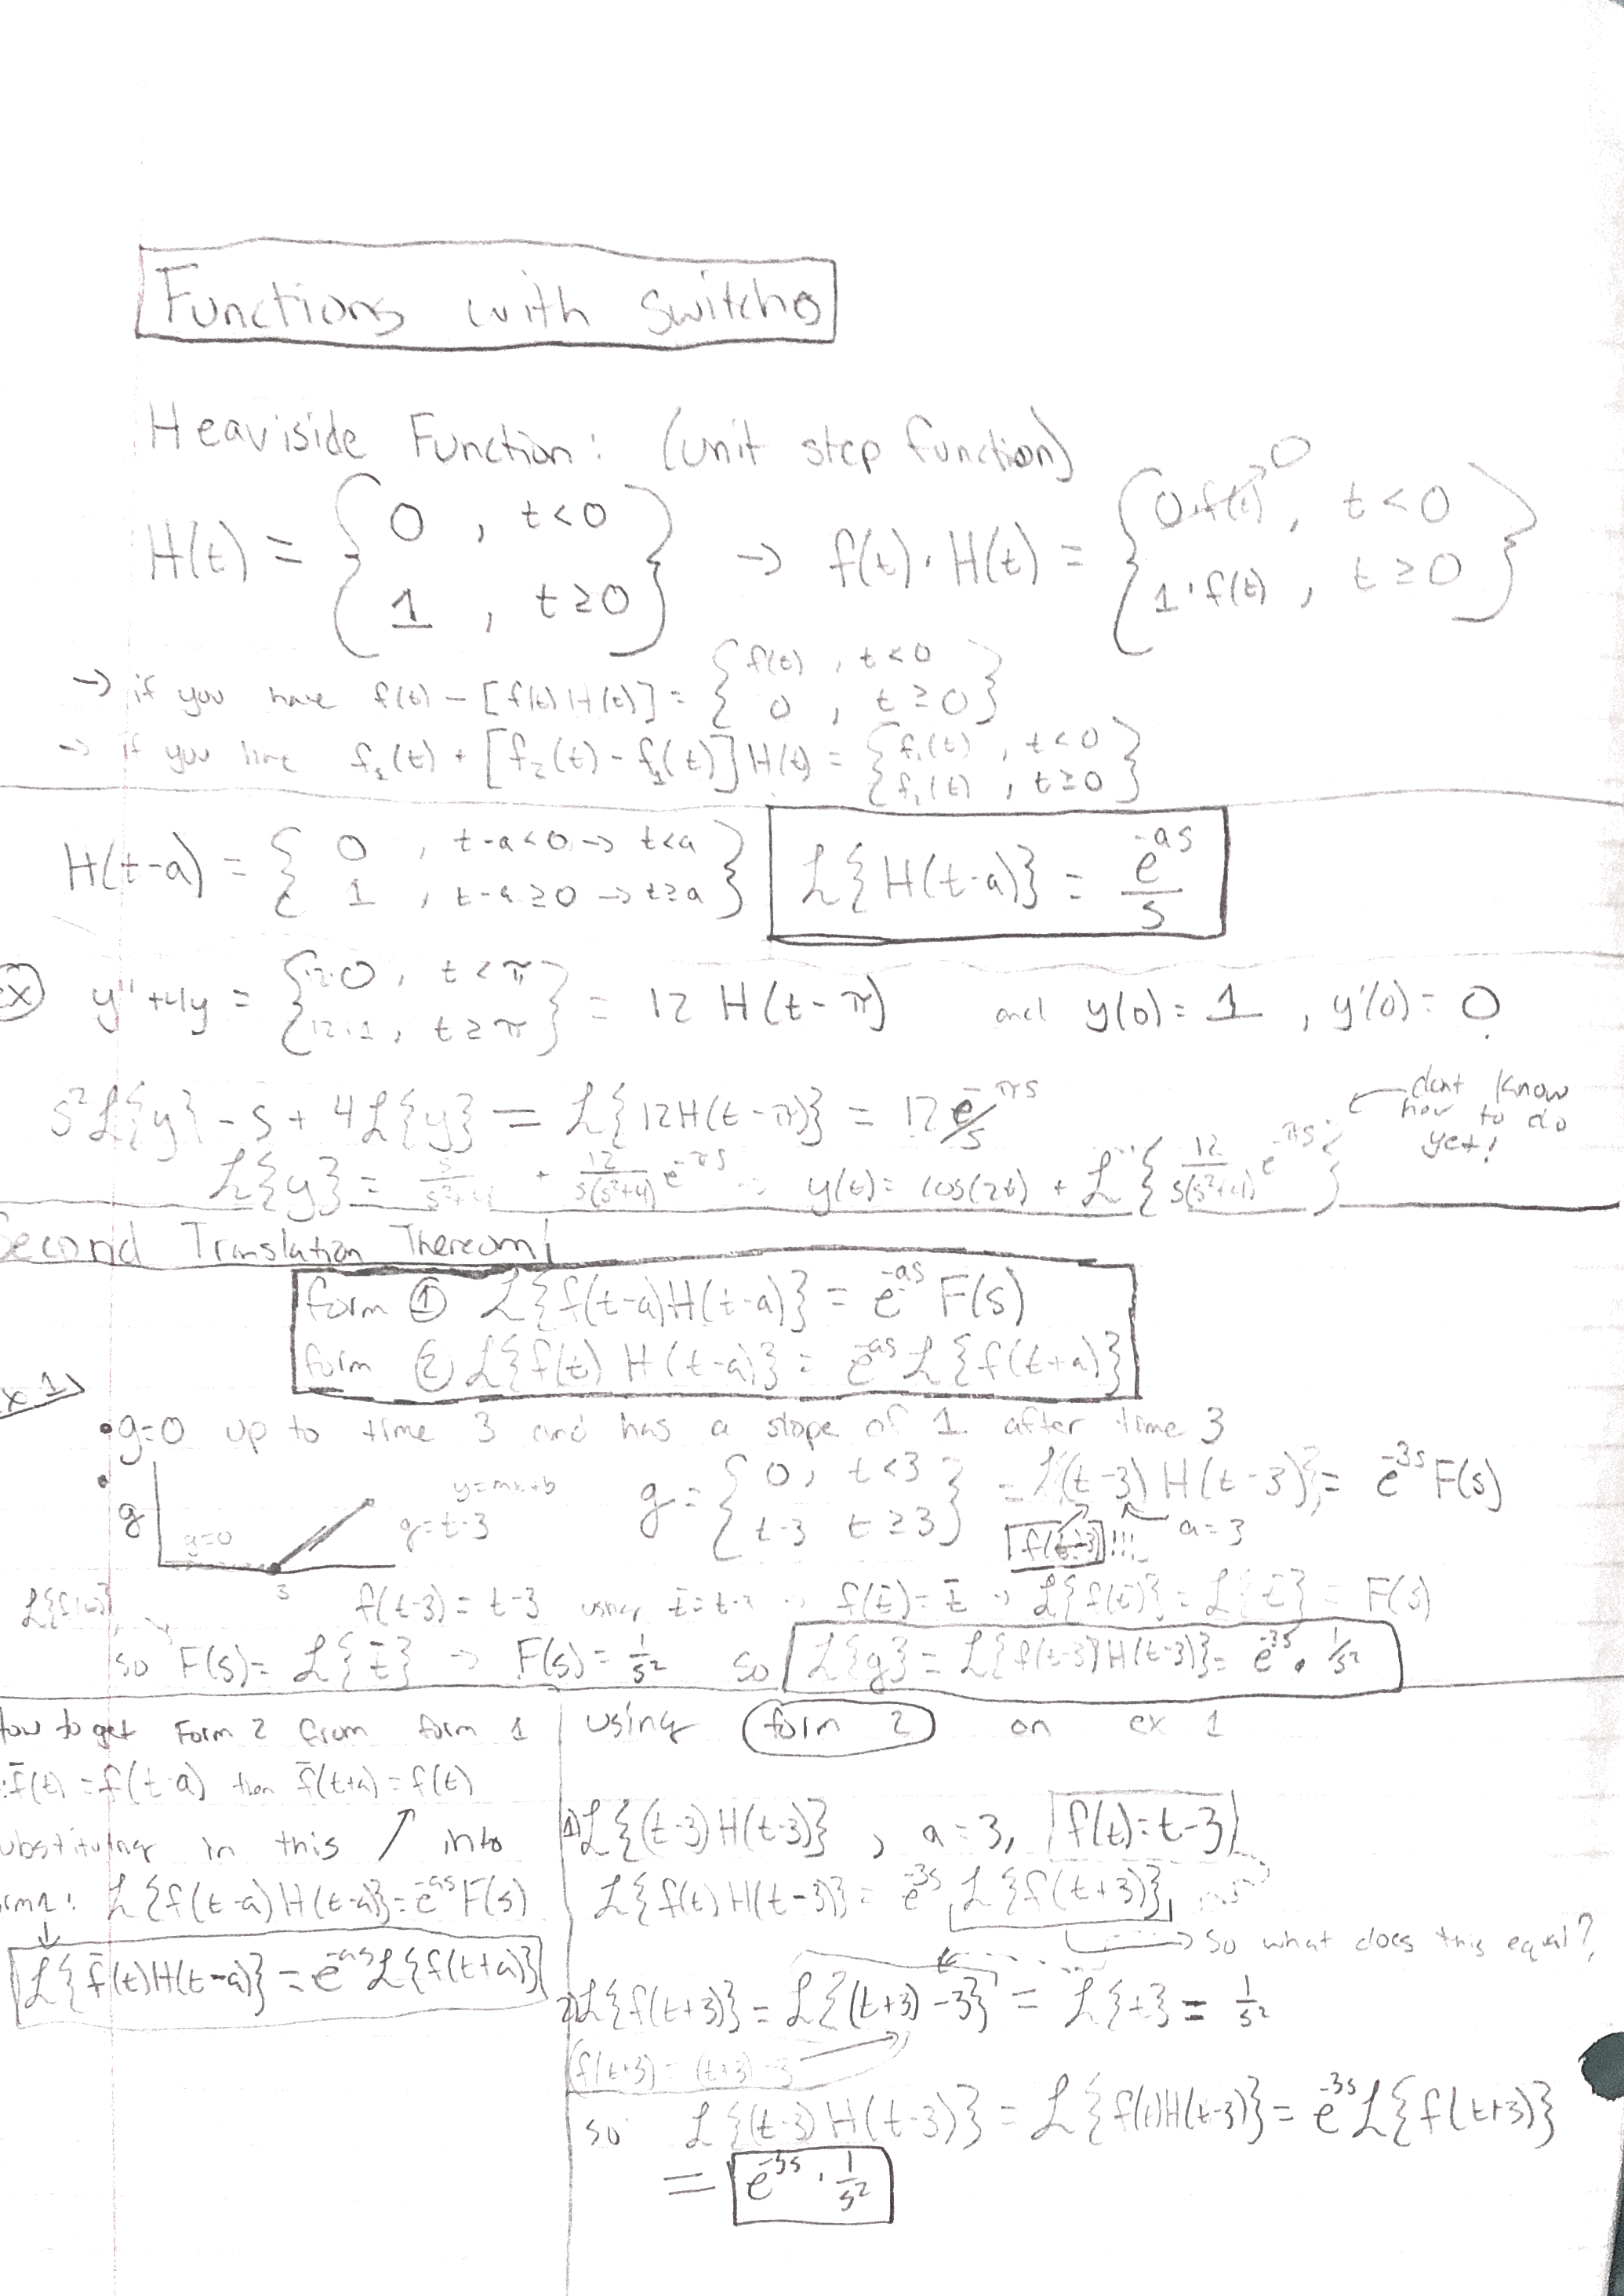 Functions with switches
Heaviside Function: (unit step function)
H(t) = { 0 , t<0
1 , t≥0 } → f(t)·H(t) = { 0·f(t) → 0 , t<0
1·f(t) , t≥0 }
→ if you have f(t) - [f(t)H(t)] = { f(t) , t<0
0 , t≥0 }
→ if you have f₁(t) + [f₂(t) - f₁(t)]H(t) = { f₁(t) , t<0
f₂(t) , t≥0 }
H(t-a) = { 0 , t-a<0 → t<a
1 , t-a≥0 → t≥a } ℒ{H(t-a)} = e^-as/s
ex y"+4y = { 12·0 , t<π
12·1 , t≥π } = 12 H(t-π) and y(0)=1 , y'(0)=0
s²ℒ{y} - s + 4ℒ{y} = ℒ{12H(t-π)} = 12 e^-πs/s
dont know how to do yet!
ℒ{y} = s/(s²+4) + 12/(s(s²+4)) e^-πs → y(t) = cos(2t) + ℒ^-1{12/(s(s²+4)) e^-πs}
Second Translation Thereom!
form ① ℒ{f(t-a)H(t-a)} = e^-as F(s)
form ② ℒ{f(t) H(t-a)} = e^-as ℒ{f(t+a)}
ex 1
• g=0 up to time 3 and has a slope of 1 after time 3
• g g=0 3 y=mx+b g=t-3
g = { 0 , t<3
t-3 t≥3 } = ℒ{(t-3)H(t-3)} = e^-3s F(s)
f(t-3)!!! a=3
ℒ{f(t)} f(t-3) = t-3 using t̄=t-3 → f(t̄)=t̄ → ℒ{f(t̄)} = ℒ{t̄} = F(s)
so F(s) = ℒ{t̄} → F(s) = 1/s² so ℒ{g} = ℒ{f(t-3)H(t-3)} = e^-3s · 1/s²
How to get Form 2 from form 1
f̄(t) = f(t-a) then f̄(t+a) = f(t)
substituting in this ↗ into
form 1: ℒ{f(t-a)H(t-a)} = e^-as F(s)
↓
ℒ{f̄(t)H(t-a)} = e^-as ℒ{f(t+a)}
using form 2 on ex 1
1) ℒ{(t-3)H(t-3)} , a=3, f(t)=t-3
ℒ{f(t)H(t-3)} = e^-3s ℒ{f(t+3)}
→ so what does this equal?
2) ℒ{f(t+3)} = ℒ{(t+3)-3} = ℒ{t} = 1/s²
f(t+3) = (t+3)-3
so ℒ{(t-3)H(t-3)} = ℒ{f(t)H(t-3)} = e^-3s ℒ{f(t+3)}
= e^-3s · 1/s²